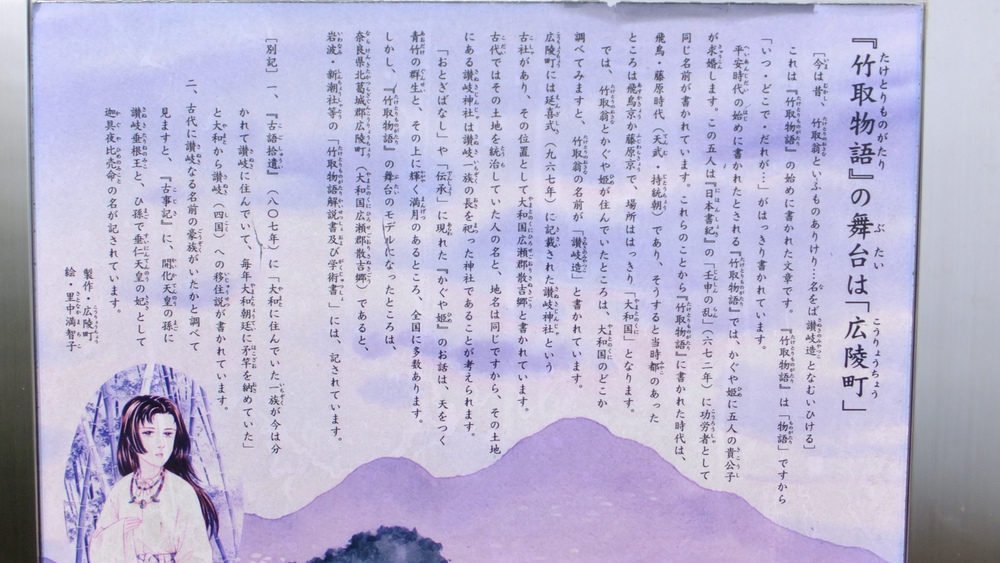 『竹取物語』の舞台は「広陵町」
［今は昔、竹取翁といふものありけり…名をば讃岐造となむいひける］
これは『竹取物語』の始めに書かれた文章です。『竹取物語』は「物語」ですから
「いつ・どこで・だれが…」がはっきり書かれています。
平安時代の始めに書かれたとされる『竹取物語』では、かぐや姫に五人の貴公子
が求婚します。この五人は『日本書記』の「壬申の乱」（六七二年）に功労者として
同じ名前が書かれています。これらのことから『竹取物語』に書かれた時代は、
飛鳥・藤原時代（天武、持統朝）であり、そうすると当時都のあった
ところは飛鳥京か藤原京で、場所ははっきり「大和国」となります。
では、竹取翁とかぐや姫が住んでいたところは、大和国のどこか
調べてみますと、竹取翁の名前が「讃岐造」と書かれています。
広陵町には延喜式（九六七年）に記載された讃岐神社という
古社があり、その位置として大和国広瀬郡散吉郷と書かれています。
古代ではその土地を統治していた人の名と、地名は同じですから、その土地
にある讃岐神社は讃岐一族の長を祀った神社であることが考えられます。
「おとぎばなし」や「伝承」に現れた『かぐや姫』のお話は、天をつく
青竹の群生と、その上に輝く満月のあるところ、全国に多数あります。
しかし、『竹取物語』の舞台のモデルになったところは、
奈良県北葛城郡広陵町（大和国広瀬郡散吉郷）であると、
岩波・新潮社等の「竹取物語解説書及び学術書」には、記されています。
［別記］一、『古語拾遺』（八〇七年）に「大和に住んでいた一族が今は分
かれて讃岐に住んでいて、毎年大和朝廷に矛竿を納めていた」
と大和から讃岐（四国）への移住説が書かれています。
二、古代に讃岐なる名前の豪族がいたかと調べて
見ますと、『古事記』に、開化天皇の孫に
讃岐垂根王と、ひ孫で垂仁天皇の妃として
迦具夜比売命の名が記されています。
製作・広陵町
絵・里中満智子